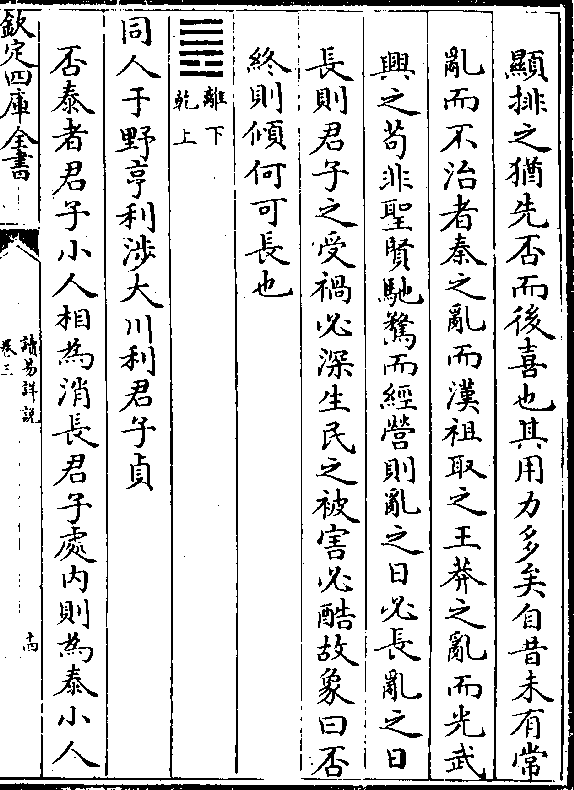 顯排之猶先否而後喜也其用力多矣自昔未有常
亂而不治者秦之亂而漢祖取之王莽之亂而光武
興之苟非聖賢馳騖而經營則亂之日必長亂之日
長則君子之受禍必深生民之被害必酷故象曰否
終則傾何可長也
䷌離下乾上
同人于野亨利涉大川利君子貞
否泰者君子小人相為消長君子處內則為泰小人
欽定四庫全書
讀易詳說
卷三
十四